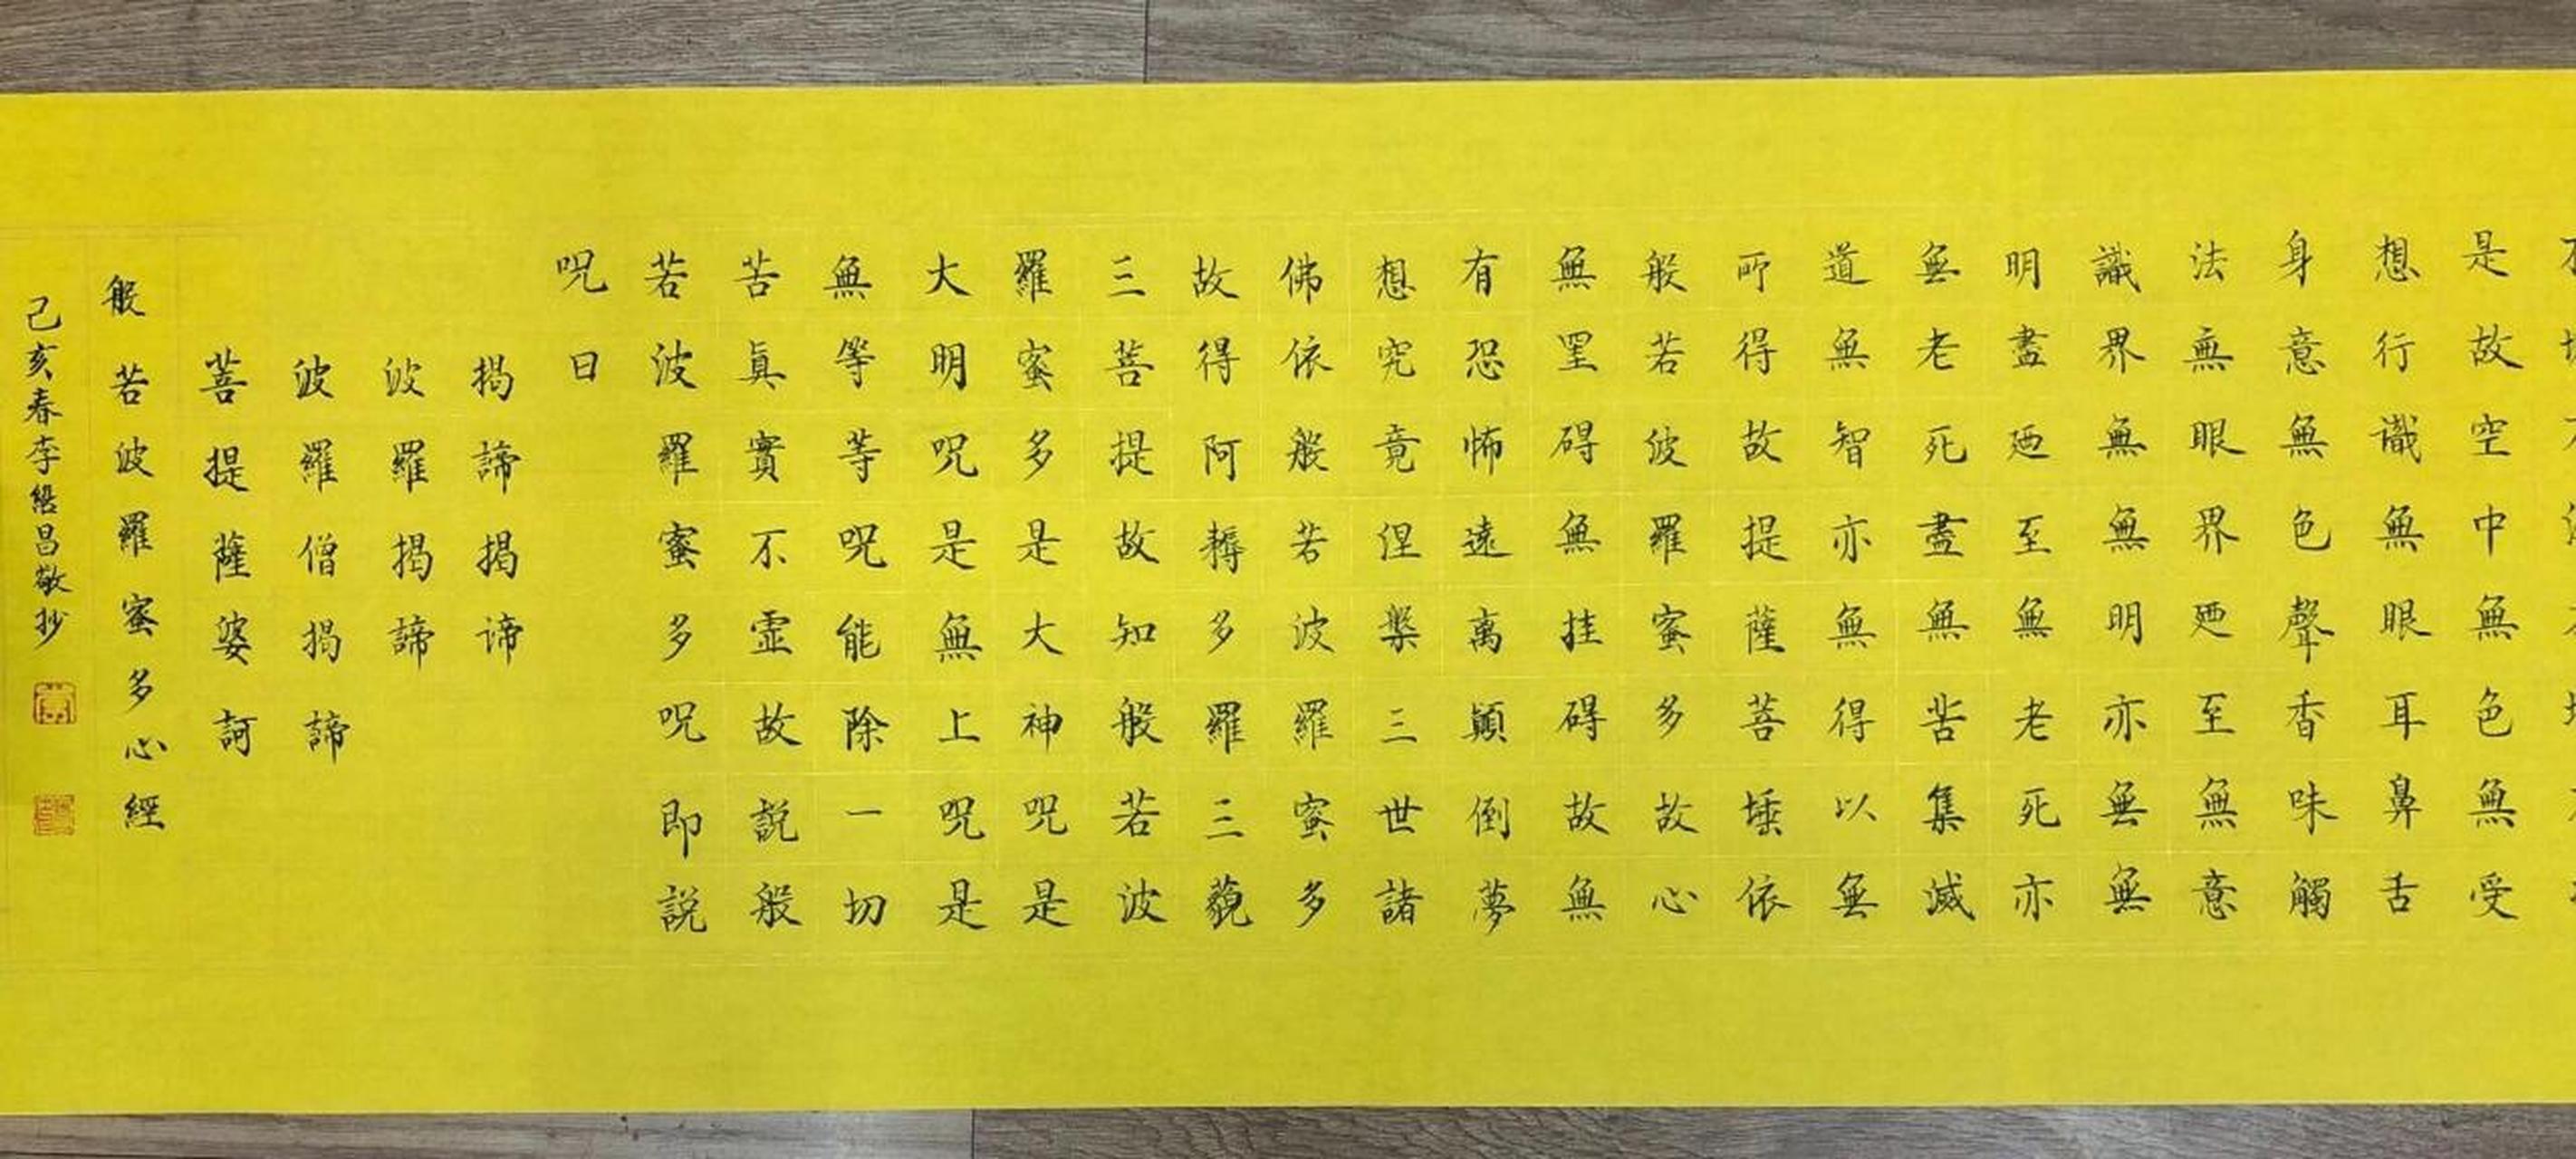 是故空中無色無受
想行識無眼耳鼻舌
身意無色聲香味觸
法無眼界廼至無意
識界無無明亦無無
明盡廼至無老死亦
無老死盡無苦集滅
道無智亦無得以無
所得故提薩菩埵依
般若波羅蜜多故心
無罣碍無挂碍故無
有恐怖遠離顛倒夢
想究竟涅槃三世諸
佛依般若波羅蜜多
故得阿耨多羅三藐
三菩提故知般若波
羅蜜多是大神咒是
大明咒是無上咒是
無等等咒能除一切
苦真實不虛故説般
若波羅蜜多咒即説
咒曰
揭諦揭谛
波羅揭諦
波羅僧揭諦
菩提薩婆訶
般若波羅蜜多心經
己亥春李繼昌敬抄